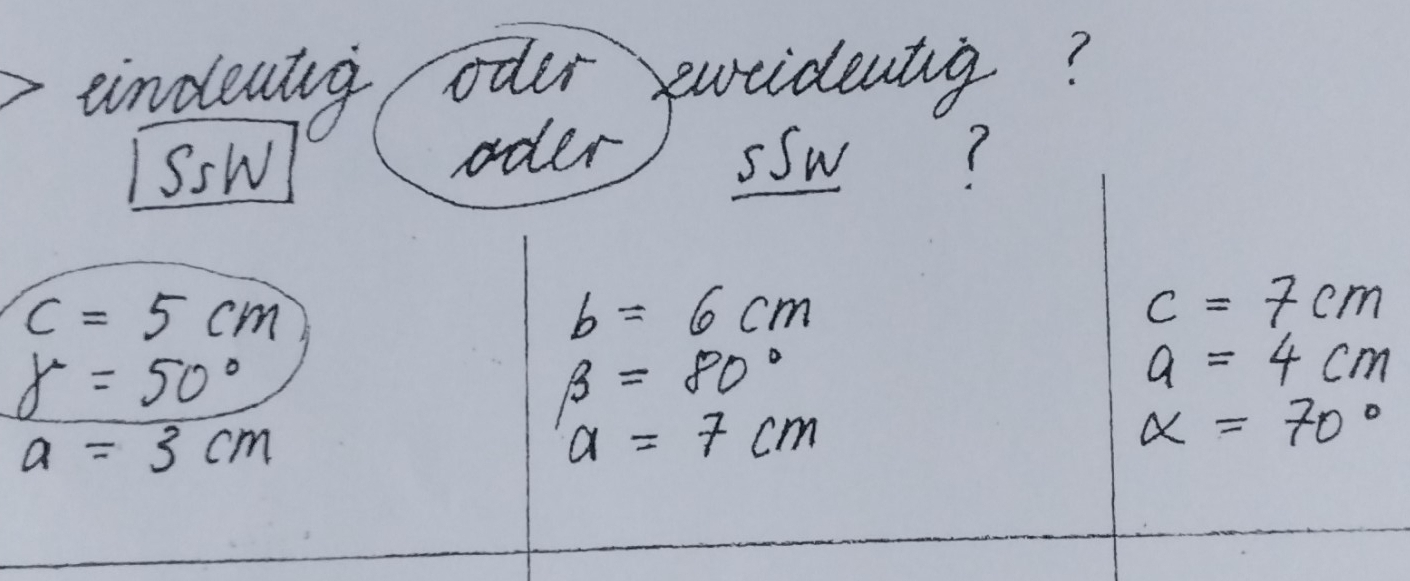 > eindeutig oder zweideutig ?
SsW oder sSw ?
c = 5 cm
γ = 50°
a = 3 cm
b = 6 cm
β = 80°
a = 7 cm
c = 7 cm
a = 4 cm
α = 70°